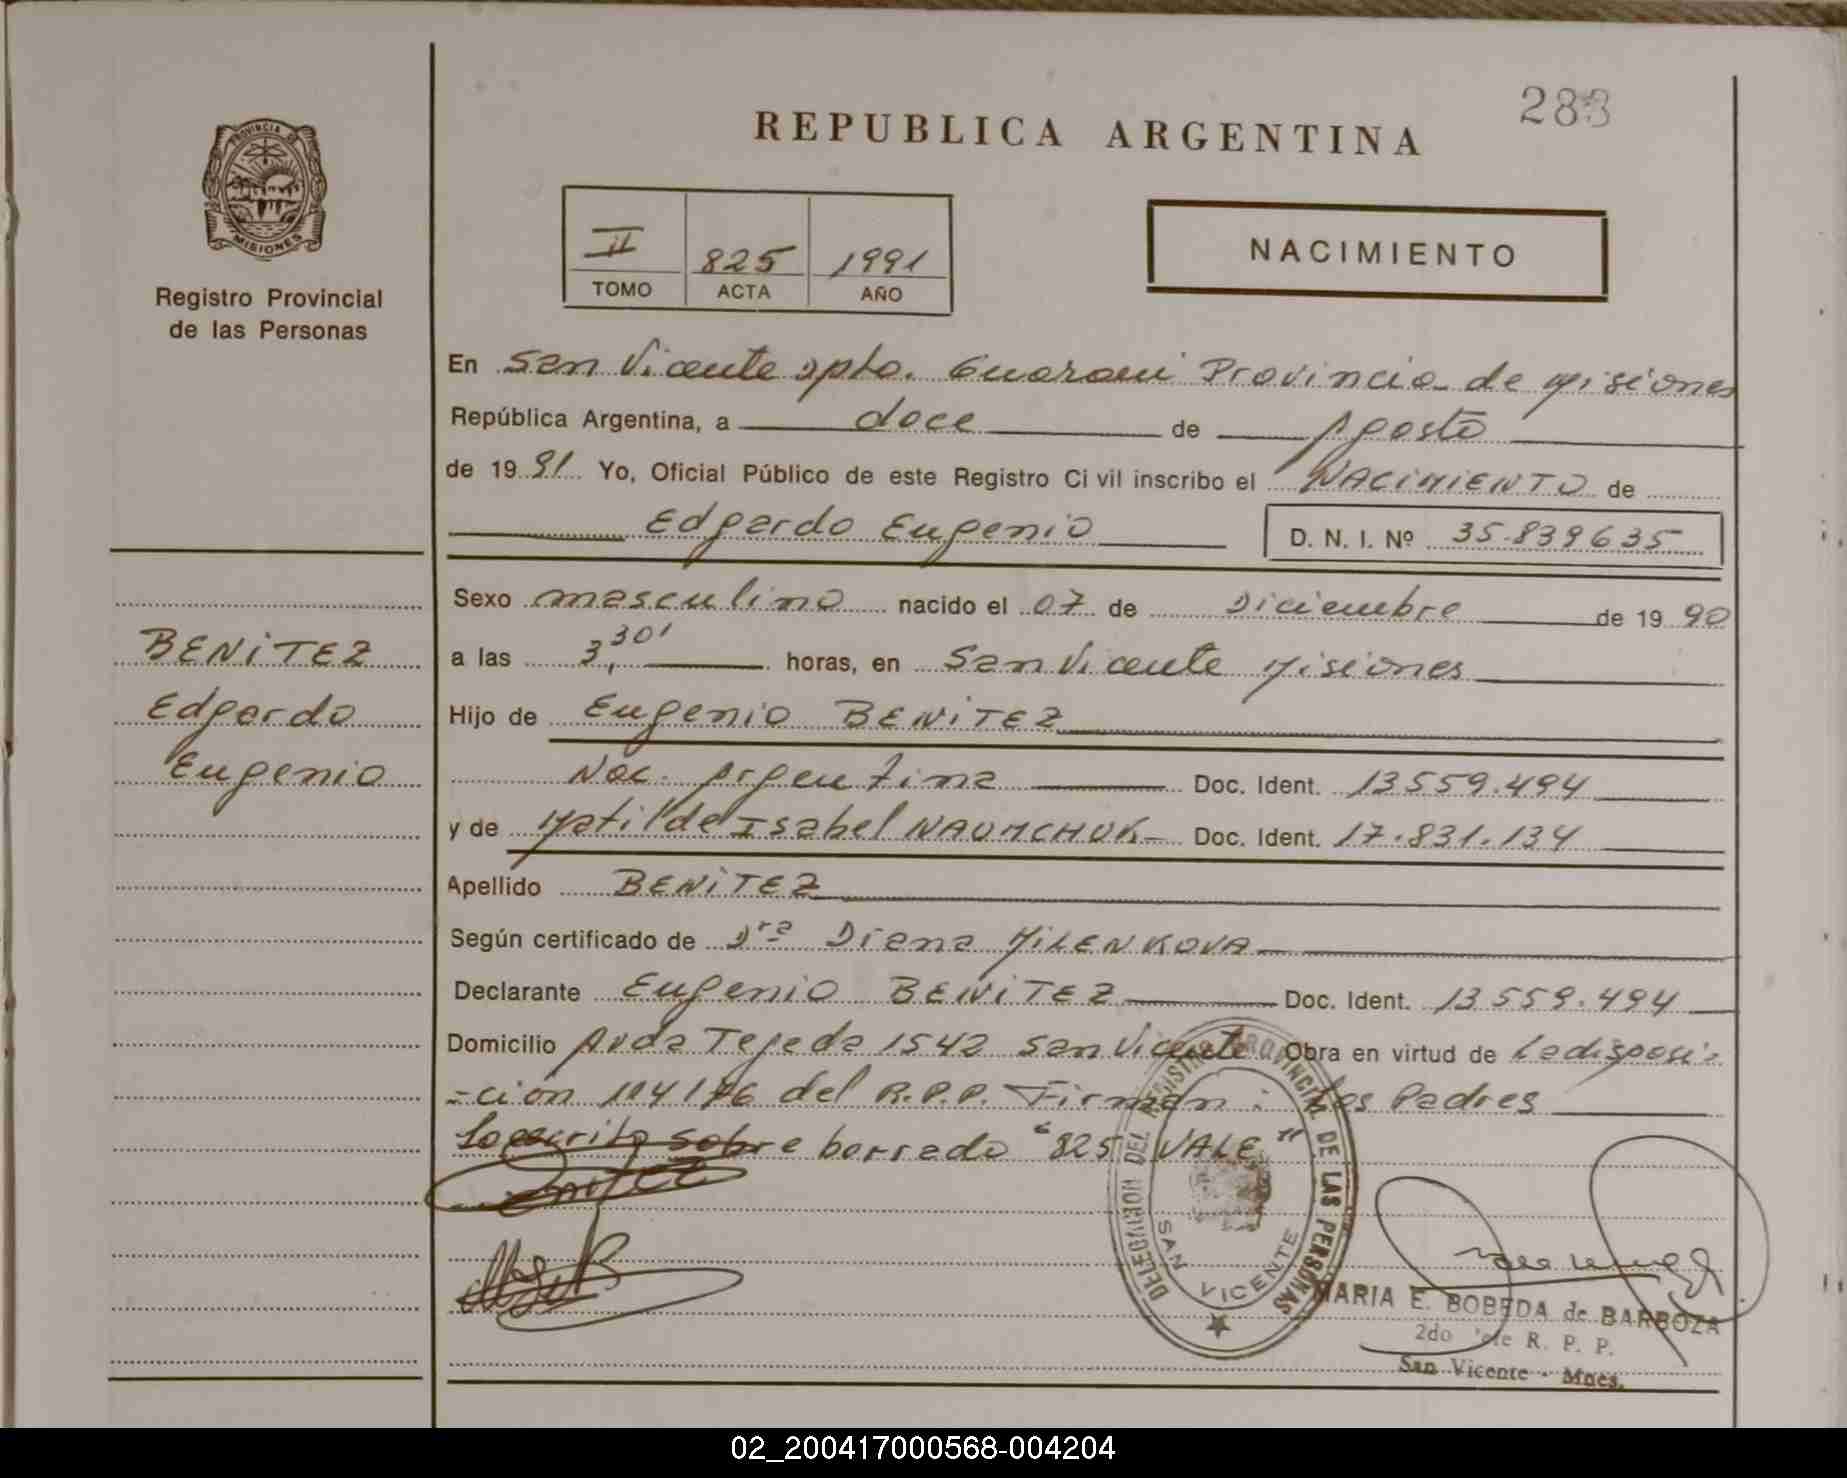 283
REPUBLICA ARGENTINA
PROVINCIA DE
MISIONES
Registro Provincial
de las Personas
II 825 1991
TOMO ACTA AÑO
NACIMIENTO
En San Vicente Dpto. Guarani Provincia de Misiones
República Argentina, a doce de Agosto
de 1991 Yo, Oficial Público de este Registro Civil inscribo el NACIMIENTO de
Edgardo Eugenio D. N. I. Nº 35.839635
Sexo masculino nacido el 07 de Diciembre de 1990
a las 3,30' horas, en San Vicente Misiones
Hijo de Eugenio BENITEZ
Nac. Argentina Doc. Ident. 13559.494
y de Matilde Isabel NAUMCHUK Doc. Ident. 17.831.134
Apellido BENITEZ
Según certificado de Dra Diana MILENKOVA
Declarante Eugenio BENITEZ Doc. Ident. 13559.494
Domicilio Avda Tejeda 1542 San Vicente Obra en virtud de La disposi-
-ción 114/76 del R.P.P. Firman: Los Padres
sobre borrado "825 VALE"
BENITEZ
Edgardo
Eugenio
DELEGACION DEL REGISTRO PROVINCIAL DE LAS PERSONAS
SAN VICENTE
MARIA E. BOBEDA de BARBOZA
2do Jefe R. P. P.
San Vicente - Mnes.
02_200417000568-004204